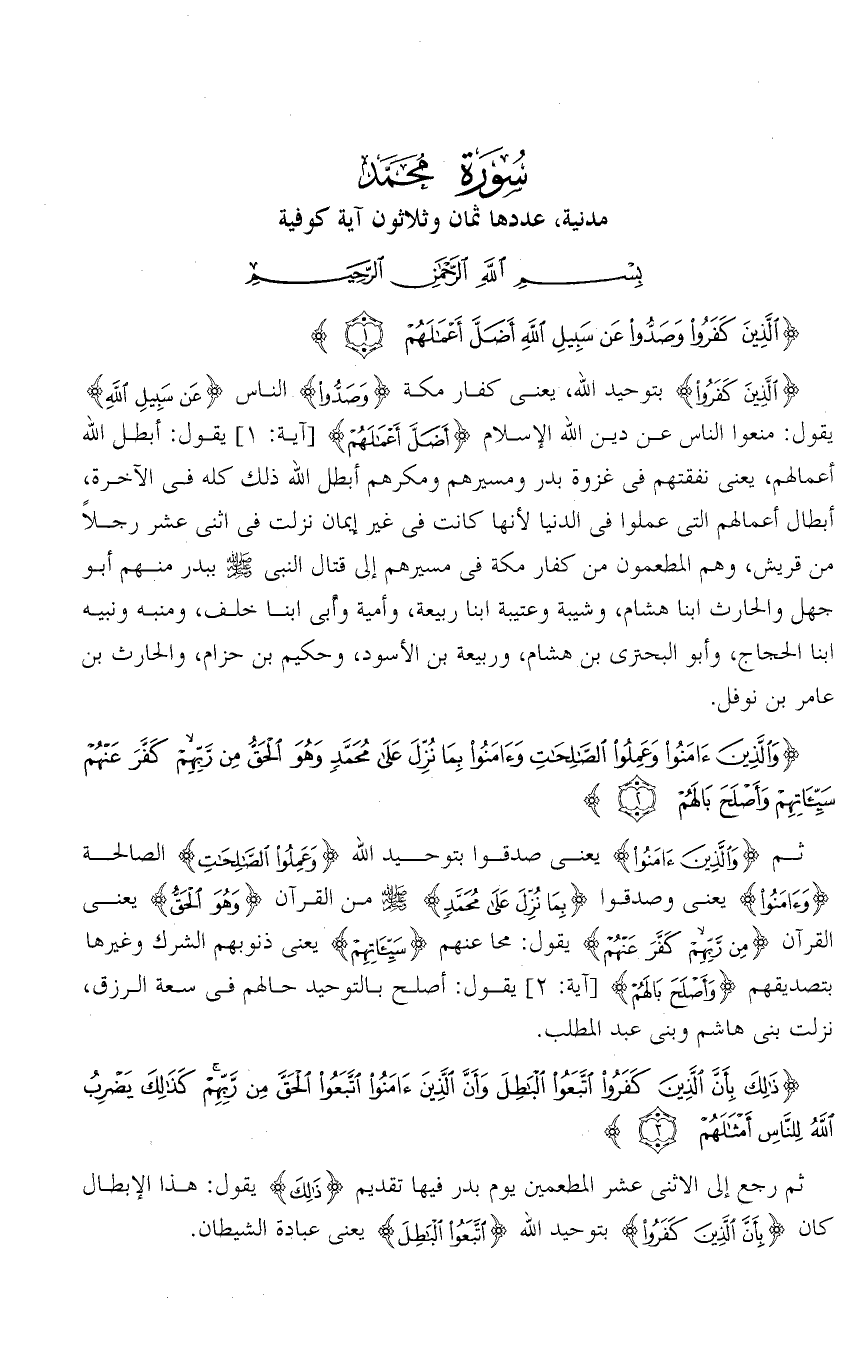 سُورَةُ مُحَمَّد
مدنية، عددها ثمان وثلاثون آية كوفية
بِسْمِ ٱللَّهِ ٱلرَّحْمَٰنِ ٱلرَّحِيمِ
﴿ٱلَّذِينَ كَفَرُوا۟ وَصَدُّوا۟ عَن سَبِيلِ ٱللَّهِ أَضَلَّ أَعْمَٰلَهُمْ ۝١﴾
﴿ٱلَّذِينَ كَفَرُوا۟﴾ بتوحيد الله، يعنى كفار مكة ﴿وَصَدُّوا۟﴾ الناس ﴿عَن سَبِيلِ ٱللَّهِ﴾
يقول: منعوا الناس عن دين الله الإسلام ﴿أَضَلَّ أَعْمَٰلَهُمْ﴾ [آية: ١] يقول: أبطل الله
أعمالهم، يعنى نفقتهم فى غزوة بدر ومسيرهم ومكرهم أبطل الله ذلك كله فى الآخرة،
أبطال أعمالهم التى عملوا فى الدنيا لأنها كانت فى غير إيمان نزلت فى اثنى عشر رجلاً
من قريش، وهم المطعمون من كفار مكة فى مسيرهم إلى قتال النبى ﷺ ببدر منهم أبو
جهل والحارث ابنا هشام، وشيبة وعتيبة ابنا ربيعة، وأمية وأبى ابنا خلف، ومنبه ونبيه
ابنا الحجاج، وأبو البحترى بن هشام، وربيعة بن الأسود، وحكيم بن حزام، والحارث بن
عامر بن نوفل.
﴿وَٱلَّذِينَ ءَامَنُوا۟ وَعَمِلُوا۟ ٱلصَّٰلِحَٰتِ وَءَامَنُوا۟ بِمَا نُزِّلَ عَلَىٰ مُحَمَّدٍ وَهُوَ ٱلْحَقُّ مِن رَّبِّهِمْ ۙ كَفَّرَ عَنْهُمْ
سَيِّـَٔاتِهِمْ وَأَصْلَحَ بَالَهُمْ ۝٢﴾
ثم ﴿وَٱلَّذِينَ ءَامَنُوا۟﴾ يعنى صدقوا بتوحيد الله ﴿وَعَمِلُوا۟ ٱلصَّٰلِحَٰتِ﴾ الصالحة
﴿وَءَامَنُوا۟﴾ يعنى وصدقوا ﴿بِمَا نُزِّلَ عَلَىٰ مُحَمَّدٍ﴾ ﷺ من القرآن ﴿وَهُوَ ٱلْحَقُّ﴾ يعنى
القرآن ﴿مِن رَّبِّهِمْ ۙ كَفَّرَ عَنْهُمْ﴾ يقول: محا عنهم ﴿سَيِّـَٔاتِهِمْ﴾ يعنى ذنوبهم الشرك وغيرها
بتصديقهم ﴿وَأَصْلَحَ بَالَهُمْ﴾ [آية: ٢] يقول: أصلح بالتوحيد حالهم فى سعة الرزق،
نزلت بنى هاشم وبنى عبد المطلب.
﴿ذَٰلِكَ بِأَنَّ ٱلَّذِينَ كَفَرُوا۟ ٱتَّبَعُوا۟ ٱلْبَٰطِلَ وَأَنَّ ٱلَّذِينَ ءَامَنُوا۟ ٱتَّبَعُوا۟ ٱلْحَقَّ مِن رَّبِّهِمْ ۚ كَذَٰلِكَ يَضْرِبُ
ٱللَّهُ لِلنَّاسِ أَمْثَٰلَهُمْ ۝٣﴾
ثم رجع إلى الاثنى عشر المطعمين يوم بدر فيها تقديم ﴿ذَٰلِكَ﴾ يقول: هذا الإبطال
كان ﴿بِأَنَّ ٱلَّذِينَ كَفَرُوا۟﴾ بتوحيد الله ﴿ٱتَّبَعُوا۟ ٱلْبَٰطِلَ﴾ يعنى عبادة الشيطان.